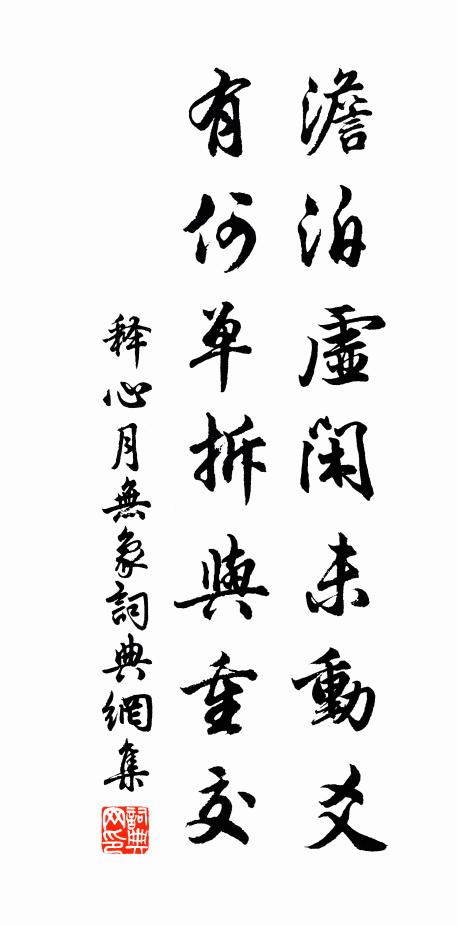 澹泊虛閑未動爻
有何單拆與重交
释心月無象詞典網集
詞典网印